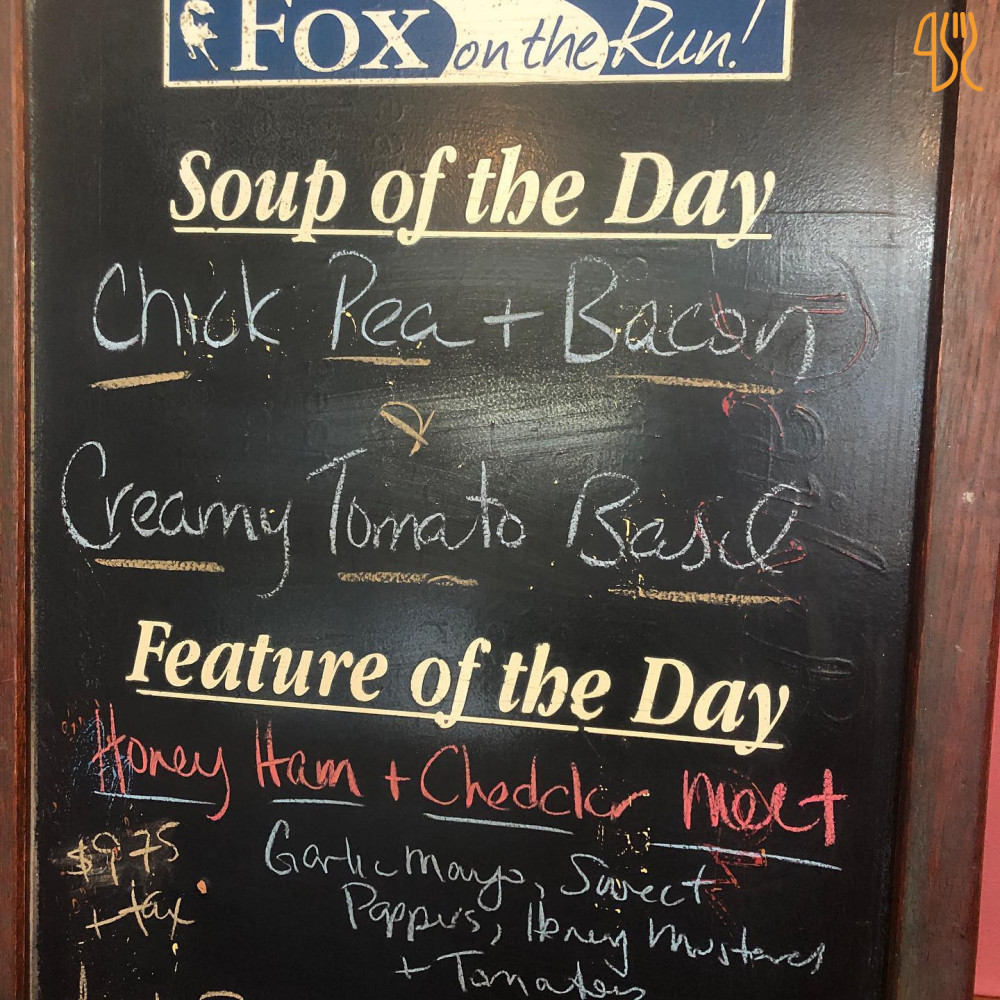 Fox on the Run!
Soup of the Day
Chick Pea + Bacon
&
Creamy Tomato Basil
Feature of the Day
Honey Ham + Cheddar Melt
$9.75
+ tax
Garlic Mayo, Sweet
Peppers, Honey Mustard
+ Tomatoes